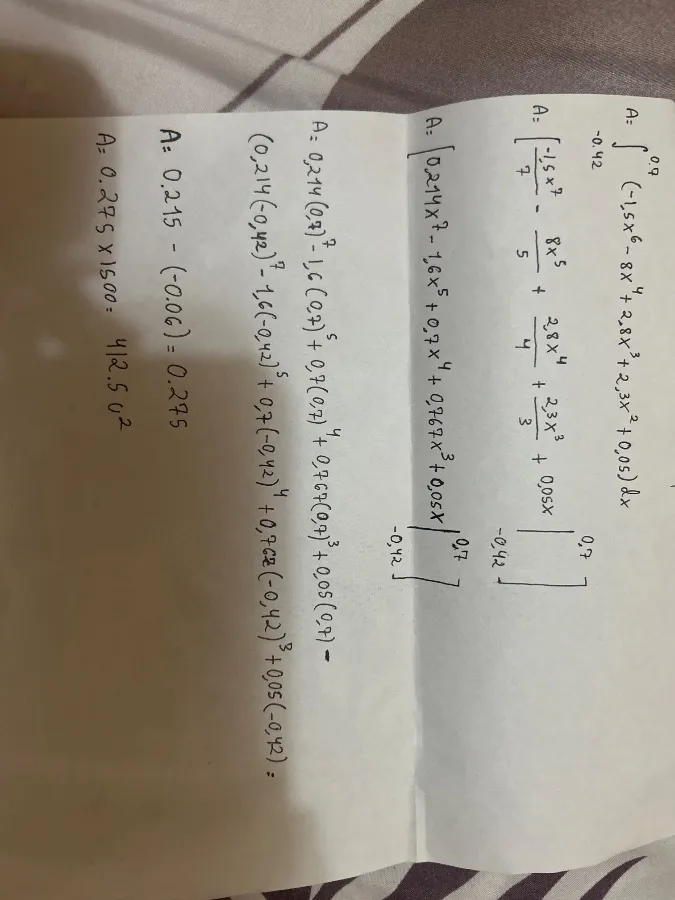 A= ∫ 0.7 -0.42 (-1,5x⁶ - 8x⁴ + 2,8x³ + 2,3x² + 0,05) dx
A= [ -1,5x⁷/7 - 8x⁵/5 + 2,8x⁴/4 + 2,3x³/3 + 0,05x | 0,7 -0,42 ]
A= [ 0,214x⁷ - 1,6x⁵ + 0,7x⁴ + 0,767x³ + 0,05x | 0,7 -0,42 ]
A= 0,214(0,7)⁷ - 1,6(0,7)⁵ + 0,7(0,7)⁴ + 0,767(0,7)³ + 0,05(0,7) -
(0,214(-0,42)⁷ - 1,6(-0,42)⁵ + 0,7(-0,42)⁴ + 0,767(-0,42)³ + 0,05(-0,42) =
A= 0.215 - (-0.06) = 0.275
A= 0.275 x 1500 = 412.5 u²